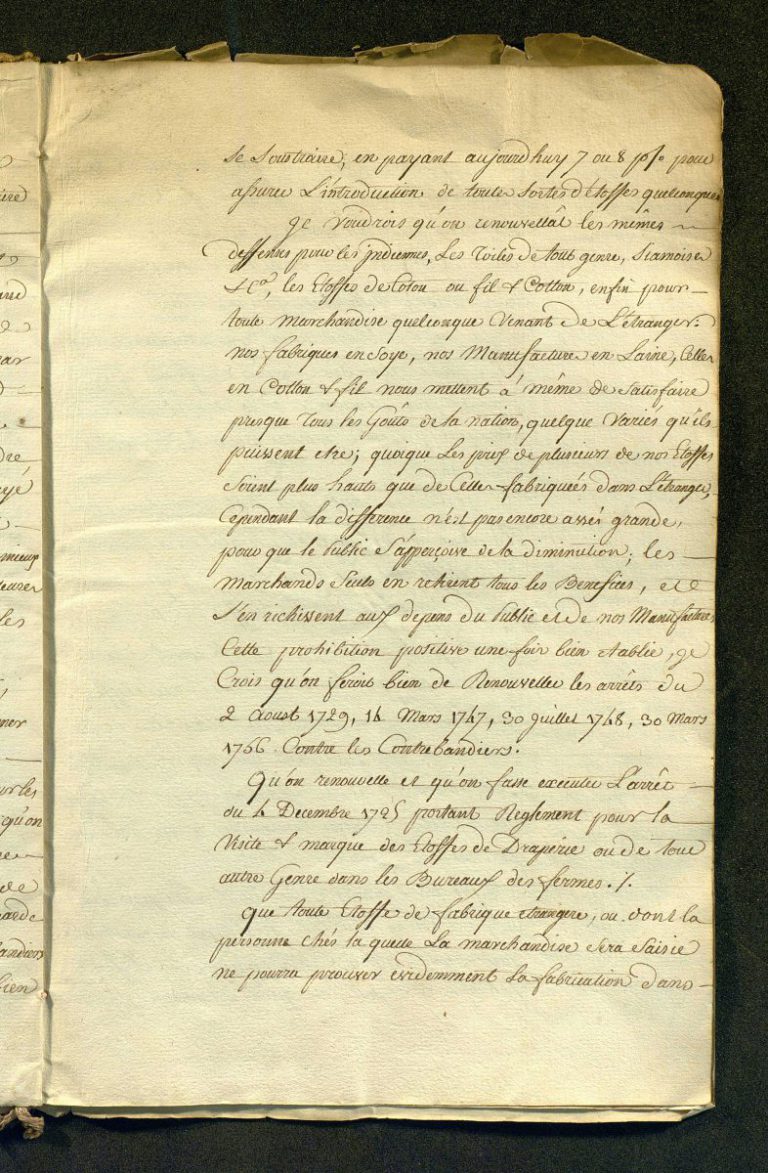 se Soustraire, en payant aujourdhuy 7 ou 8 p% pour
assurer L'introduction de toutes sortes d'Etoffes quelconques
Je voudrois qu'on renouvellât les mêmes
deffenses pour les jndiennes, Les Toiles de tout genre, Siamoises
&ca, les Etoffes de Coton ou fil & Cotton, enfin pour
toute Marchandise quelconque Venant de L'Etranger:
nos fabriques en Soye, nos Manufactures en Laine, Celles
en Cotton & fil nous mettent à même de Satisfaire
presque tous les Goûts de la nation, quelque Variés qu'ils
puissent etre; quoique Les prix de plusieurs de nos Etoffes
Soient plus hauts que de Celles fabriqueés dans L'Etranger,
Cependant la difference n'est pas encore assés grande,
pour que le Public s'apperçoive de la diminution; les
Marchands Seuls en retirent tous les Benefices, et
S'enrichissent aux depens du Public et de nos Manufactures
Cette prohibition positive une fois bien etablie, je
Crois qu'on feroit bien de Renouveller les arrêts du
2 Aoust 1729, 14 Mars 1747, 30 Juillet 1748, 30 Mars
1756 Contre les Contrebandiers.
Qu'on renouvelle et qu'on fasse executer L'arrêt
du 4 Decembre 1725 portant Reglement pour la
Visite & marque des Etoffes de Draperie ou de tout
autre Genre dans les Bureaux des fermes ./.
Que toute Etoffe de fabrique etrangere, ou dont la
personne chés la quelle La marchandise Sera Saisie
ne pourra prouver evidemment La fabrication dans